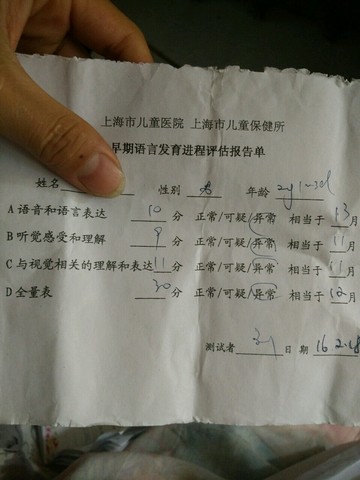 上海市儿童医院 上海市儿童保健所
早期语言发育进程评估报告单
姓名 性别 男 年龄
A 语音和语言表达 10 分 正常/可疑/异常 相当于 13 月
B 听觉感受和理解 9 分 正常/可疑/异常 相当于 11 月
C 与视觉相关的理解和表达 11 分 正常/可疑/异常 相当于 11 月
D 全量表 30 分 正常/可疑/异常 相当于 12 月
测试者 日 期 16.2.18